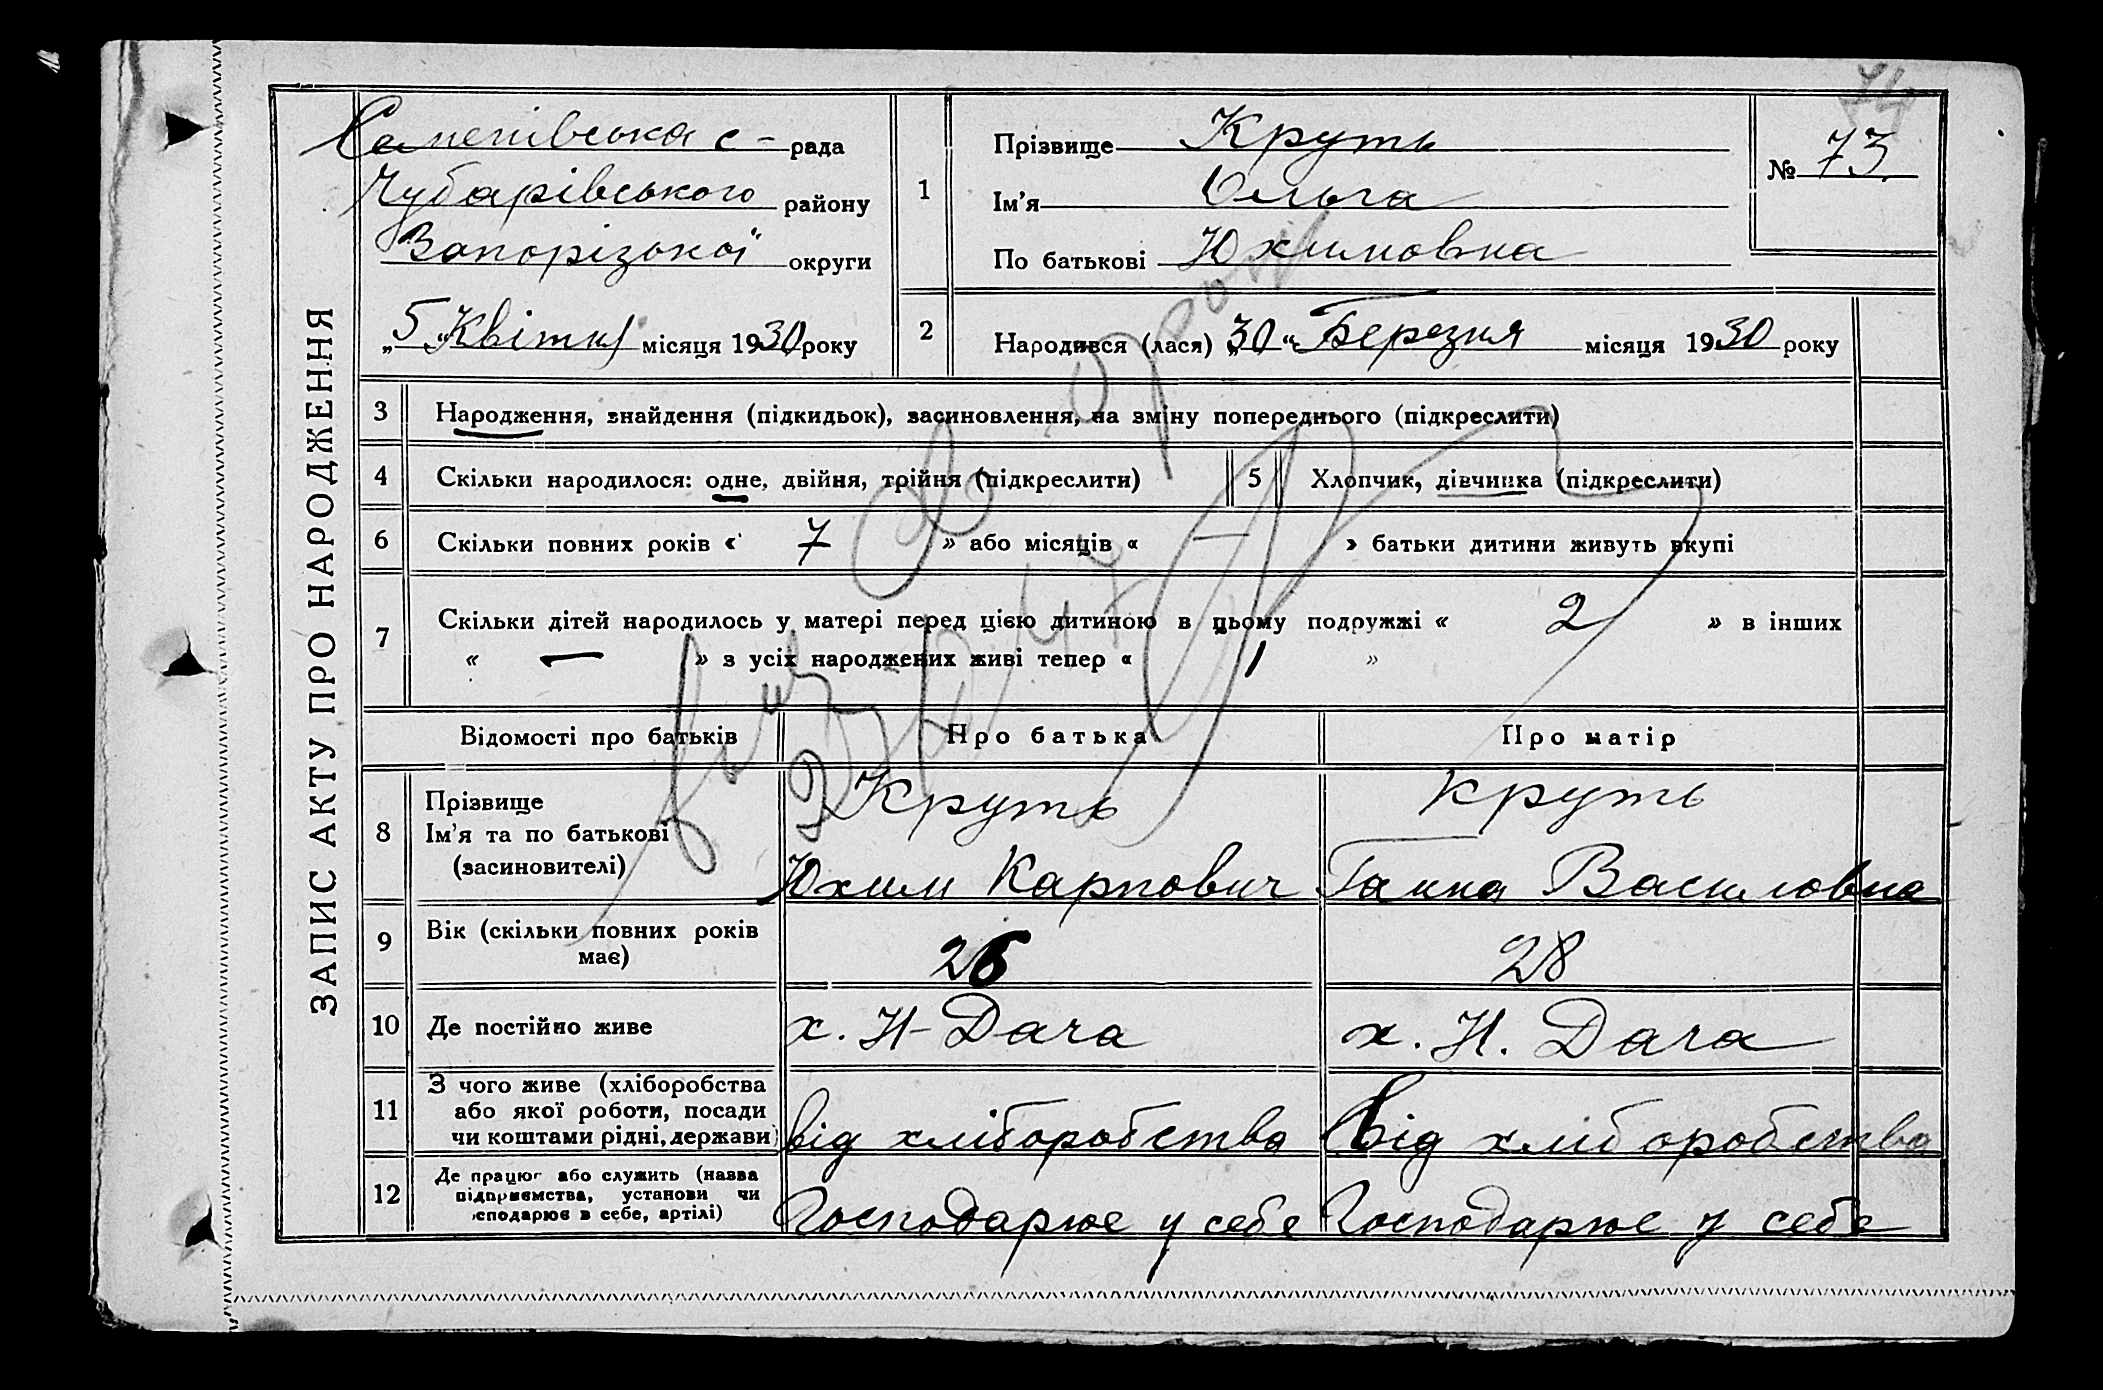 ЗАПИС АКТУ ПРО НАРОДЖЕННЯ
с- рада
Чубарівського району
Запорізької округи
„5“ Квітня місяця 1930 року
1
Прізвище Круть
Ім'я Ольга
По батькові Юхимовна
№ 73
2
Народився (лася) „30“ Березня місяця 1930 року
3 Народження, знайдення (підкидьок), засиновлення, на зміну попереднього (підкреслити)
4 Скільки народилося: одне, двійня, трійня (підкреслити)
5 Хлопчик, дівчинка (підкреслити)
6 Скільки повних років « 7 » або місяців « — » батьки дитини живуть вкупі
7 Скільки дітей народилось у матері перед цією дитиною в цьому подружжі « 2 » в інших
« — » з усіх народжених живі тепер « 1 »
Відомості про батьків Про батька Про матір
8 Прізвище
Ім'я та по батькові
(засиновителі)
Круть
Юхим Карпович
Круть
Ганна Василовна
9 Вік (скільки повних років
має)
26
28
10 Де постійно живе
х. Н-Дача
х. Н. Дача
11 З чого живе (хліборобства
або якої роботи, посади
чи коштами рідні, держави)
від хліборобства
від хліборобства
12 Де працює або служить (назва
підприємства, установи чи
господарює в себе, артілі)
Господарює у себе
Господарює у себе